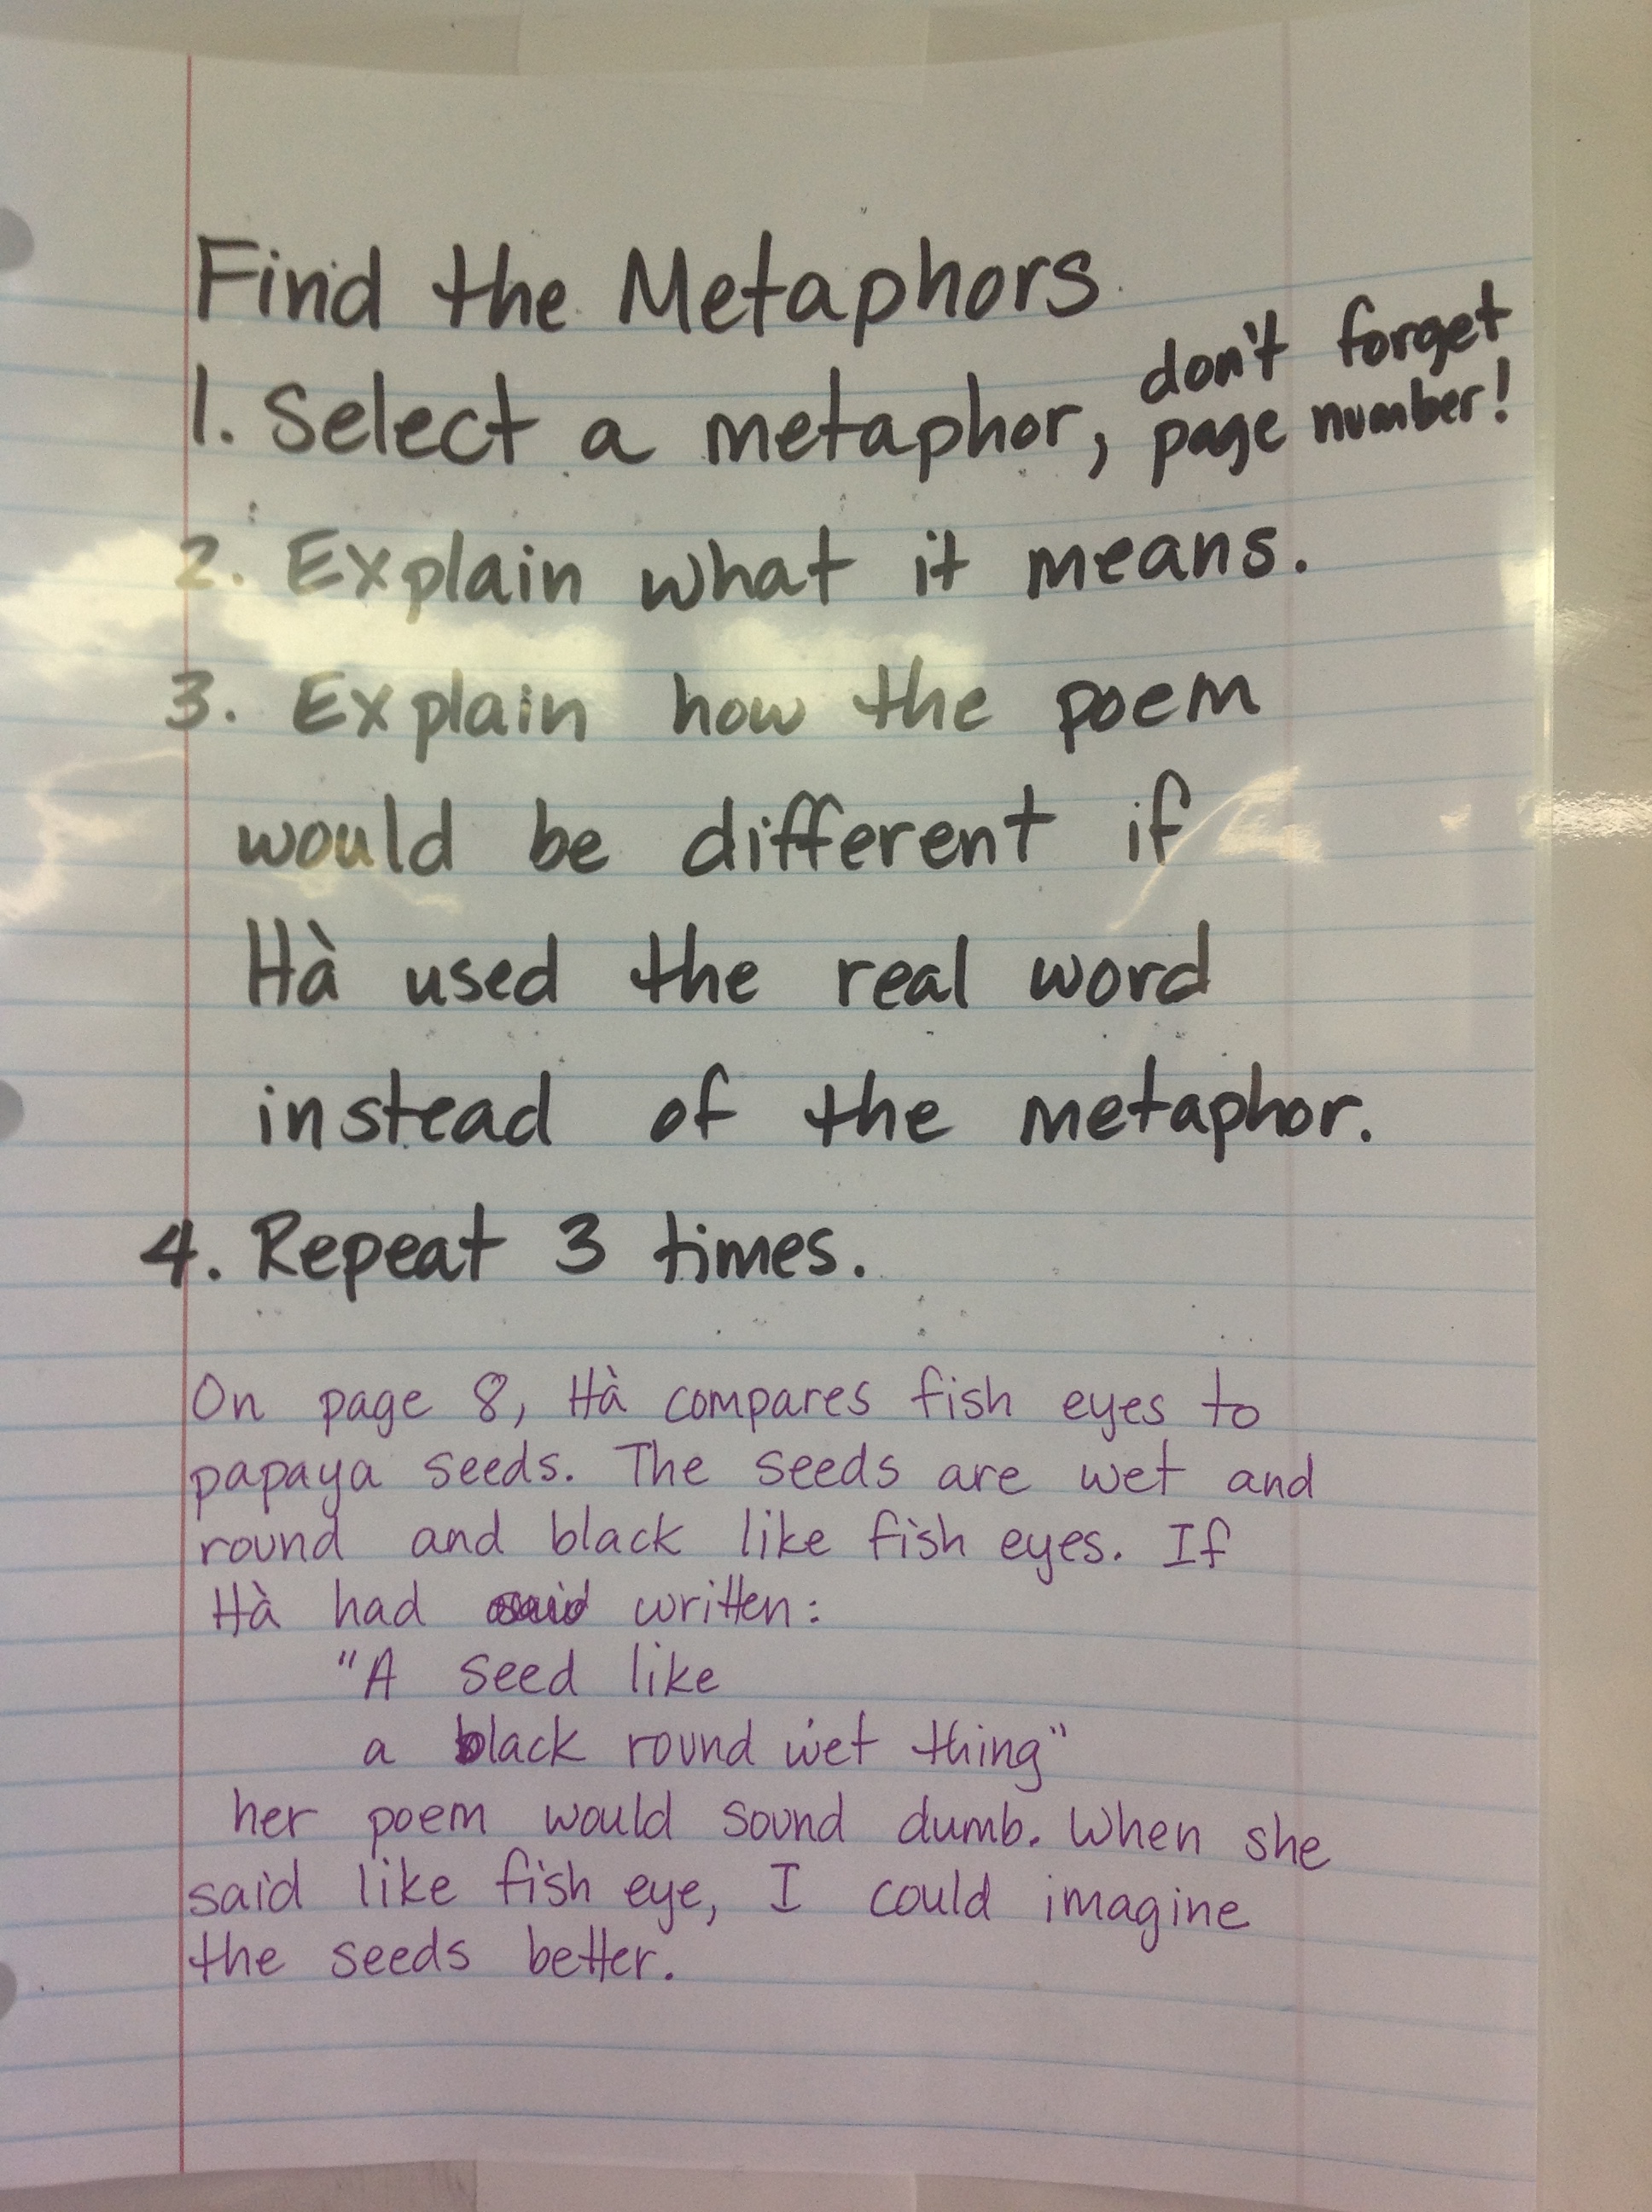 Find the Metaphors
1. Select a metaphor, don't forget
page number!
2. Explain what it means.
3. Explain how the poem
would be different if
Hà used the real word
instead of the metaphor.
4. Repeat 3 times.
On page 8, Hà compares fish eyes to
papaya seeds. The seeds are wet and
round and black like fish eyes. If
Hà had said written:
"A seed like
a black round wet thing"
her poem would sound dumb. When she
said like fish eye, I could imagine
the seeds better.